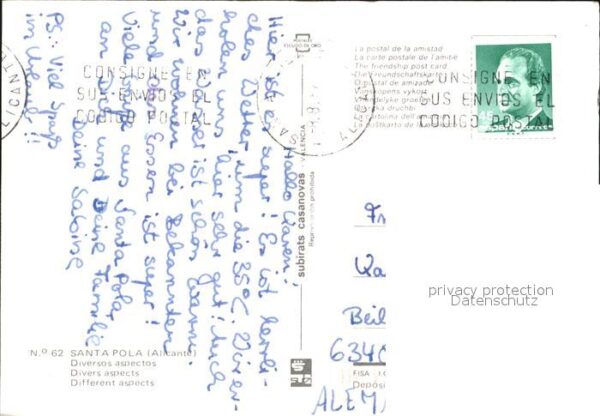 Hallo Karen!
Hier ist es super! Es ist herrli-
ches Wetter, um die 35°C. Wir er-
holen uns hier sehr gut! Auch
das Wasser ist schön warm.
Wir wohnen bei Bekannten
und das Essen ist super!
Viele aus Santa Pola,
an und Deine Familie
Deine Sabine
PS: Viel Spass
im Urlaub!!
CONSIGNE EN
SUS ENVIOS EL
CODIGO POSTAL
ALICANTE
POSTALES
ESCUDO DE ORO
subirats casanovas - VALENCIA
Reproducción prohibida
La postal de la amistad
La carte postale de l'amitié
The friendship post card
Die Freundschaftskarte
O postal de amizade
Vänskapens vykort
Vriendelyke groeten
La cartolina dell'
CONSIGNE EN
SUS ENVIOS EL
CODIGO POSTAL
correos
Ka
Beil
634
ALEM
privacy protection
Datenschutz
N.º 62 SANTA POLA (Alicante)
Diversos aspectos
Divers aspects
Different aspects
FISA - I.
Depósi